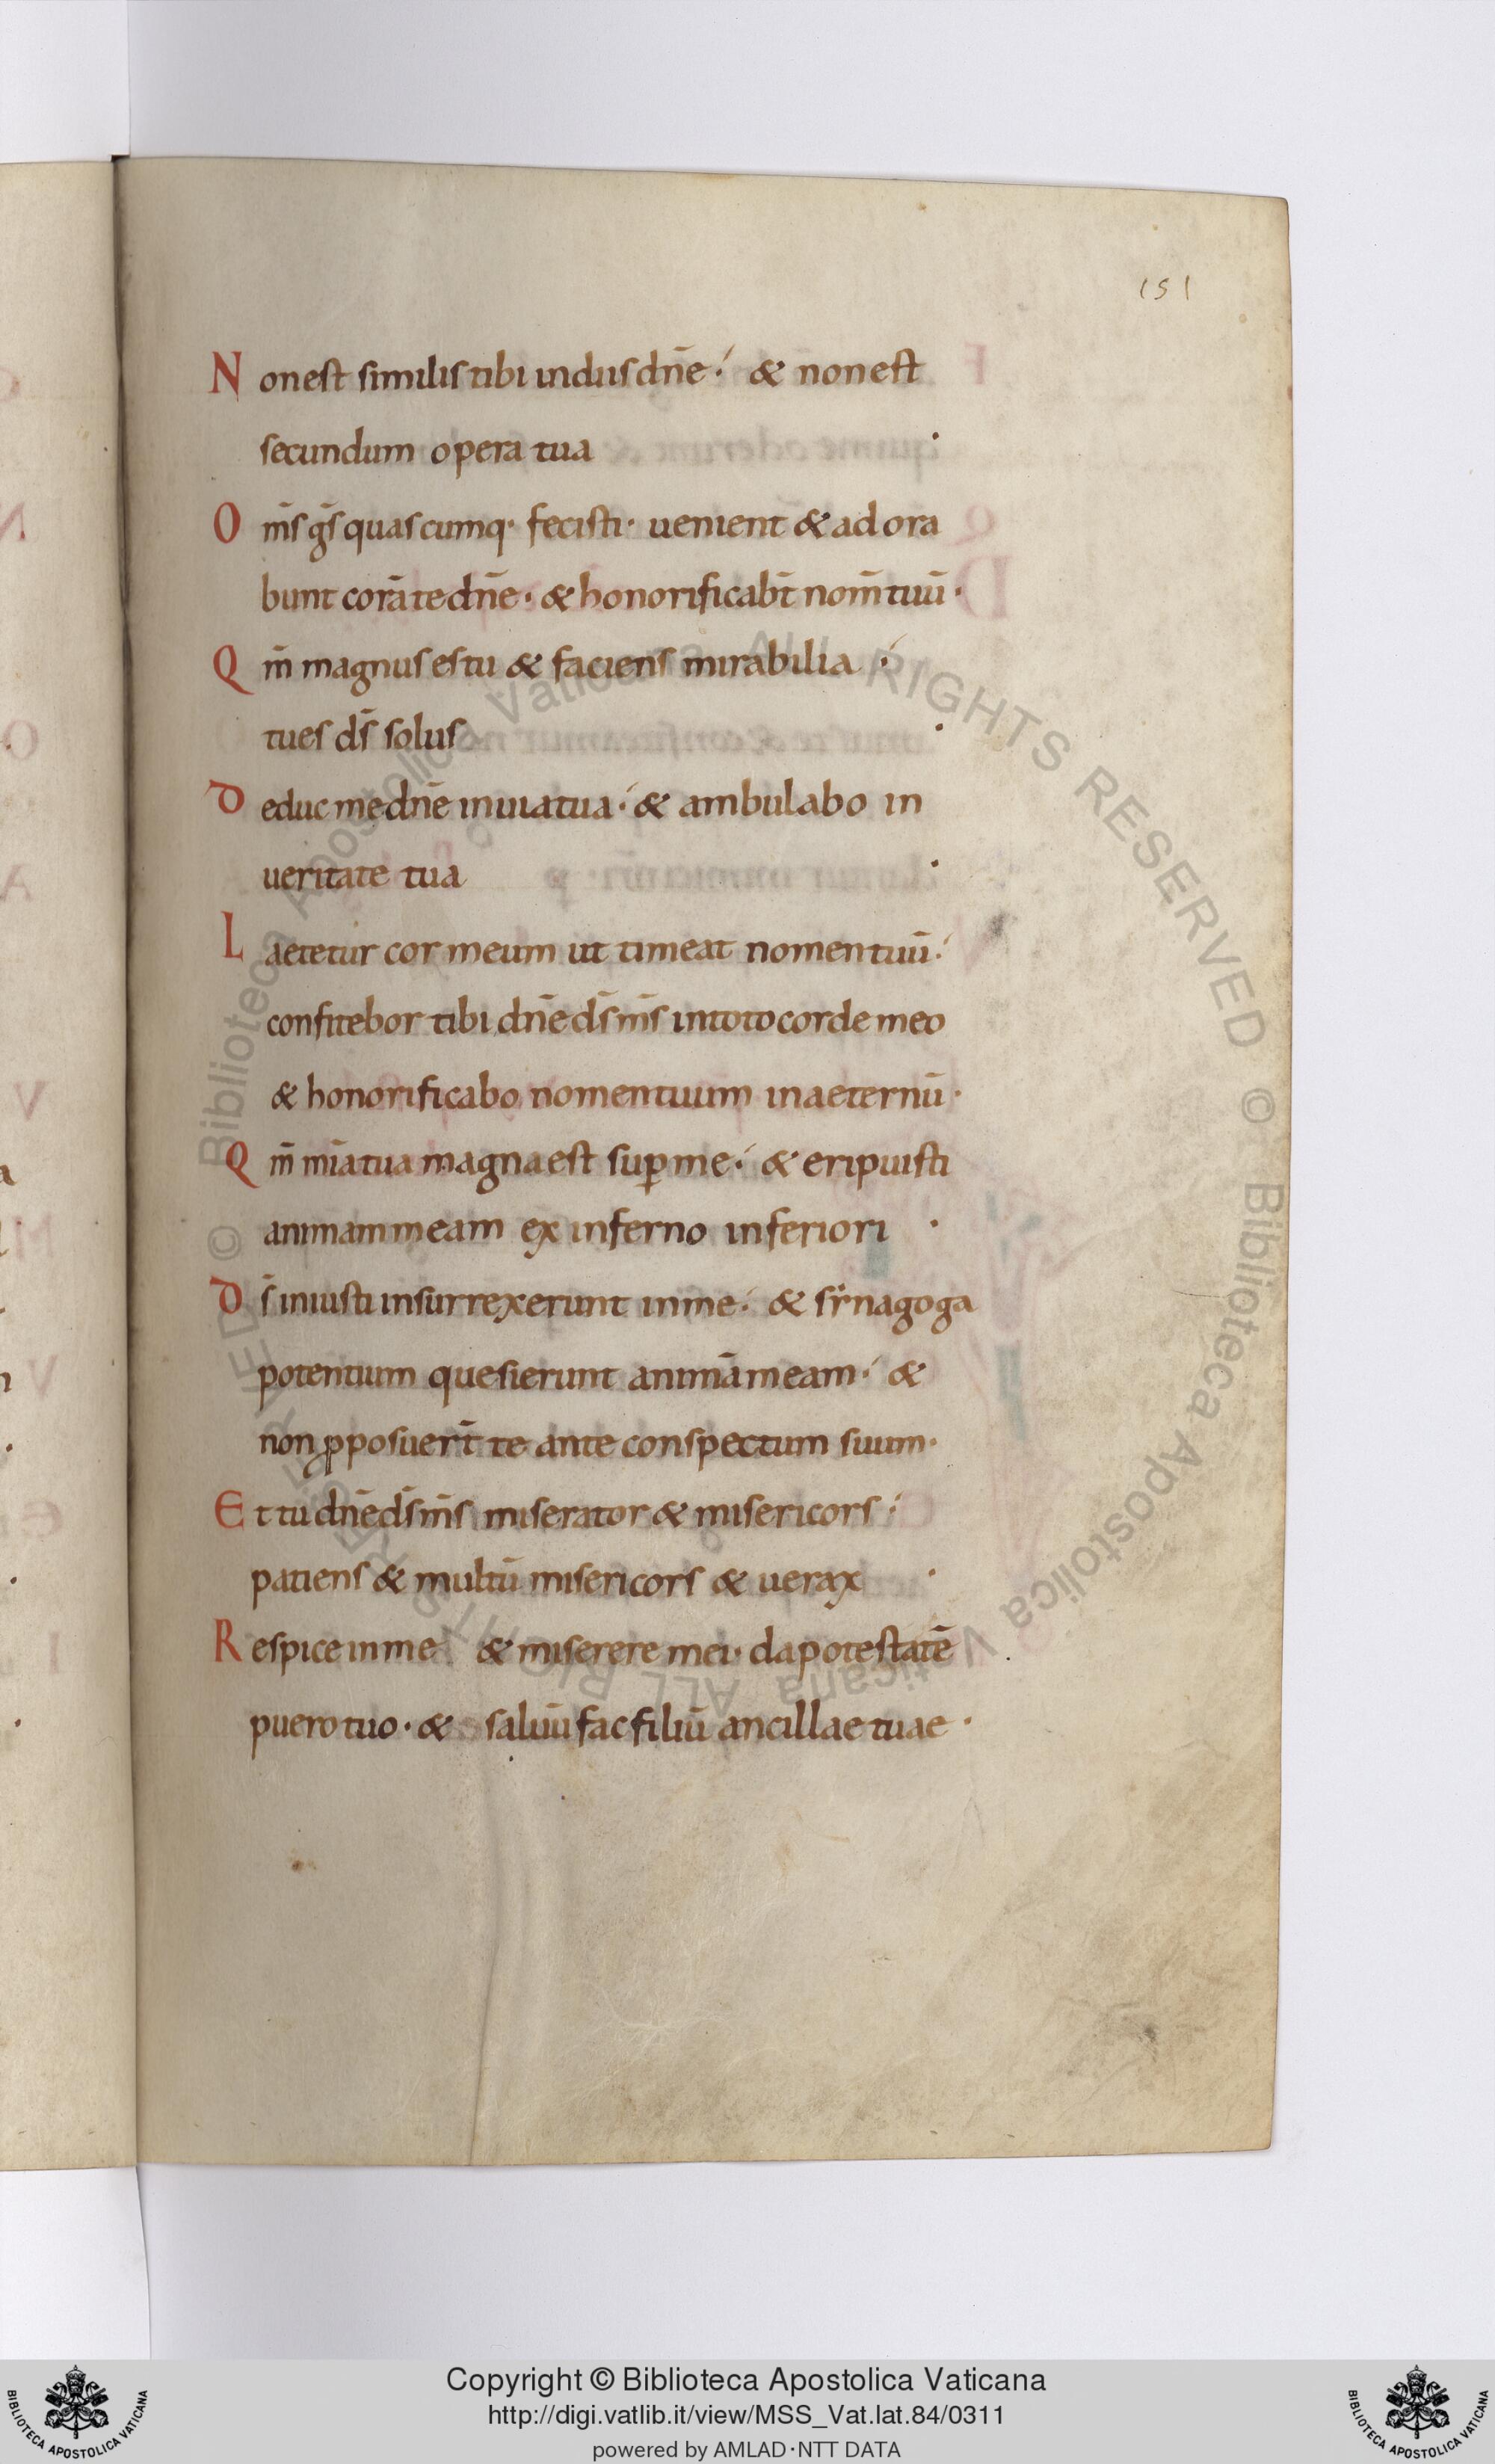 151
Non est similis tibi in diis dn̄e · & non est
secundum opera tua ·
Om̄s ḡs quascumq· fecisti · uenient & adora
bunt corā te dn̄e · & honorificab̄t nom̄ tuū ·
Qm̄ magnus es tu & faciens mirabilia ·
tu es d̄s solus ·
Deduc me dn̄e in uia tua · & ambulabo in
ueritate tua ·
Laetetur cor meum ut timeat nomen tuū ·
confitebor tibi dn̄e d̄s m̄s in toto corde meo
& honorificabo nomen tuum in aeternū ·
Qm̄ mīa tua magna est sup̱ me · & eripuisti
animam meam ex inferno inferiori ·
Ds̄ iniusti insurrexerunt in me · & synagoga
potentium quesierunt animā meam · &
non ꝓposuer̄t te ante conspectum suum ·
Et tu dn̄e d̄s m̄s miserator & misericors ·
patiens & multū misericors & uerax ·
Respice in me & miserere mei · da potestatē
puero tuo · & saluū fac filiū ancillae tuae ·
© Biblioteca Apostolica Vaticana ALL RIGHTS RESERVED
© Biblioteca Apostolica Vaticana ALL RIGHTS RESERVED
Copyright © Biblioteca Apostolica Vaticana
http://digi.vatlib.it/view/MSS_Vat.lat.84/0311
powered by AMLAD·NTT DATA
BIBLIOTECA APOSTOLICA VATICANA
BIBLIOTECA APOSTOLICA VATICANA